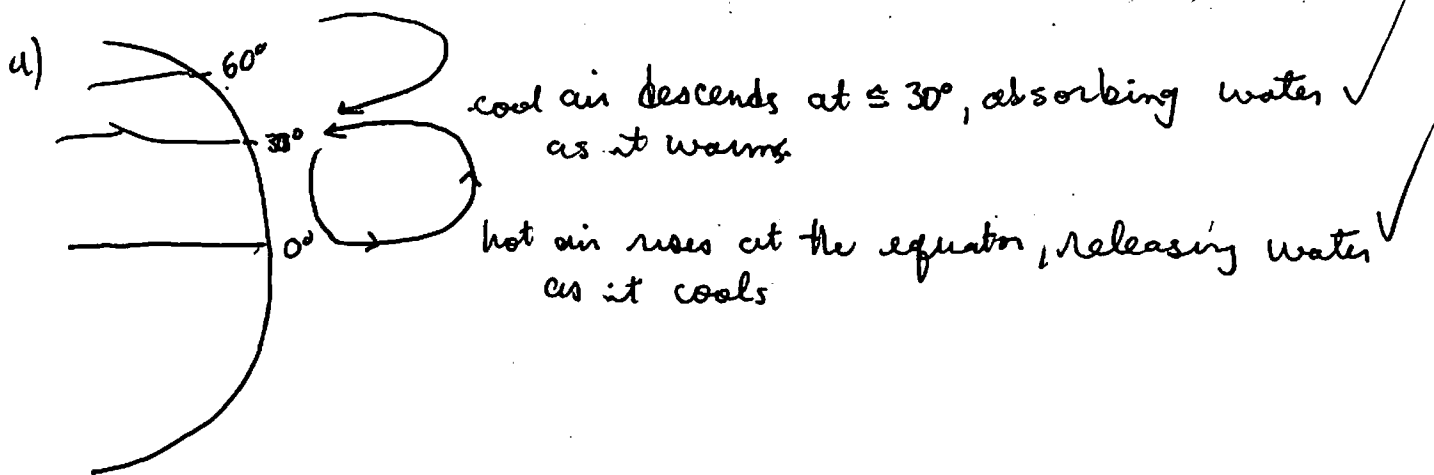 a)
60°
cool air descends at ≅ 30°, absorbing water ✓
as it warms
30°
hot air rises at the equator, releasing water ✓
0°
as it cools